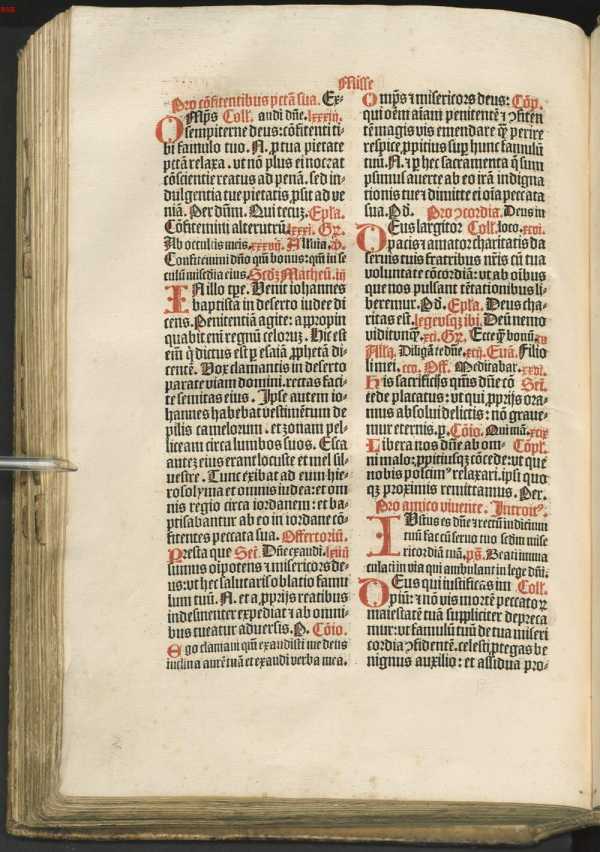 Misse
Pro cõfitentibus pctãa sua. Ex-
Mp̃s Coll. audi dñe. lxxxiij.
O sempiterne deus: cõfitenti ti-
bi famulo tuo. N. p tua pietate
pctãa relaxa. vt nõ plus ei noceat
cõscientie reatus ad penã. sed in-
dulgentia tue pietatis ꝓsit ad ve
niã. Per dñm. Qui tecuꝫ. Epl̃a.
Cõfitemini alterutrũ. lxxxi. Gr̃.
Ab occultis meis. xxxvij. Alleluia. ℣.
Confitemini dño qm̃ bonus: qm̃ in se
culũ misc̃dia eius. Scd̃ꝫ Matheũ. iij
IN illo tpe. Venit iohannes
baptista in deserto iudee di
cens. Penitentiã agite: appropin
quabit em̃ regnũ celoruꝫ. Hic est
eim̃ q̃ dictus est p esaiã ꝓphetã di-
centẽ. Vox clamantis in deserto
parate viam domini. rectas faci-
te semitas eius. Ipse autem io-
hannes habebat vestimentum de
pilis camelorum. et zonam pel-
liceam circa lumbos suos. Esca
anteꝫ eius erant locuste et mel sil-
uestre. Tunc exibat ad eum hie-
rosolyma et omnis iudea: et om
nis regio circa iordanem: et ba-
ptisabantur ab eo in iordane cõ-
fitentes peccata sua. Offertoriũ.
Presta que Sec̃. Dñe exaudi. lxiiij
sumus oĩpotens ⁊ misericors de-
us: vt hec salutaris oblatio famu
lum tuũ. N. et a ꝓprijs reatibus
indesinenter expediat ⁊ ab omni-
bus tueatur aduersis. P. Cõio.
Ego clamaui qm̃ exaudisti me deus
inclina aurẽ tuã et exaudi verba mea.
Omp̃s ⁊ misericors deus: Cõp.
qui oẽm aĩam penitentẽ ⁊ ꝯfiten
tẽ magis vis emendare q̃ perire
respice ꝓpitius sup hunc famulũ
tuũ. N. ⁊ p hec sacramenta q̃ sum
psimus auerte ab eo irã indigna
tionis tue ⁊ dimitte ei oĩa peccata
sua. P d. Pro ꝯcordia. Deus in
DEus largitor Coll. loco. xcvi.
pacis ⁊ amator charitatis da
seruis tuis fratribus nr̃is cũ tua
voluntate cõcordiã: vt ab oĩbus
que nos pulsant tẽtationibus li
beremur. P d. Epl̃a. Deus cha-
ritas est. lege vsqꝫ ibi. Deũ nemo
vidit vnqꝫ. xci. Gr̃. Ecce q̃ bonũ. xv
All̃a. Diligã te dñe. xcij. Euã. Filio
li mei. cco. Off. Meditabar. xxvi.
His sacrificijs qm̃s dñe cõ Sec̃.
cede placatus: vt qui ꝓprijs ora-
mus absolui delictis: nõ graue-
mur eternis. p. Cõio. Qui mã. xcix
Libera nos dñe ab om- Cõpl̃.
ni malo: ꝓpitiusqꝫ cõcede: vt que
nobis poscim9 relaxari. ipsi quo
qꝫ proximis remittamus. Per.
Pro amico viuente. Introit9.
IUstus es dñe ⁊ rectũ iudicium
tuũ fac cũ seruo tuo scdm mise
ricordiã tuã. ps̃. Beati imma
culati in via qui ambulant in lege dñi.
DEus qui iustificas im Coll.
piũ: ⁊ nõ vis mortẽ peccatoꝝ
maiestatẽ tuã suppliciter depreca
mur: vt famulũ tuũ de tua miseri
cordia ꝯfidentẽ. celesti ꝓtegas be
nignus auxilio: et assidua pro-